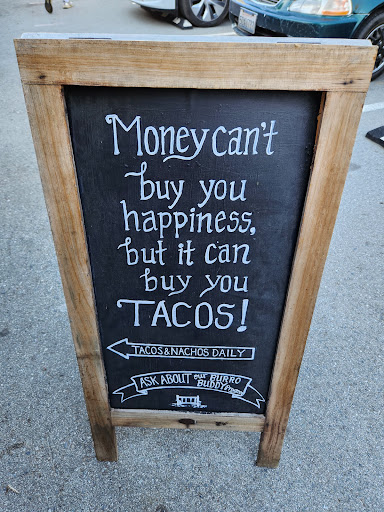 Money can't
buy you
happiness,
but it can
buy you
TACOS!
TACOS & NACHOS DAILY
ASK ABOUT our BURRO
BUDDY Program